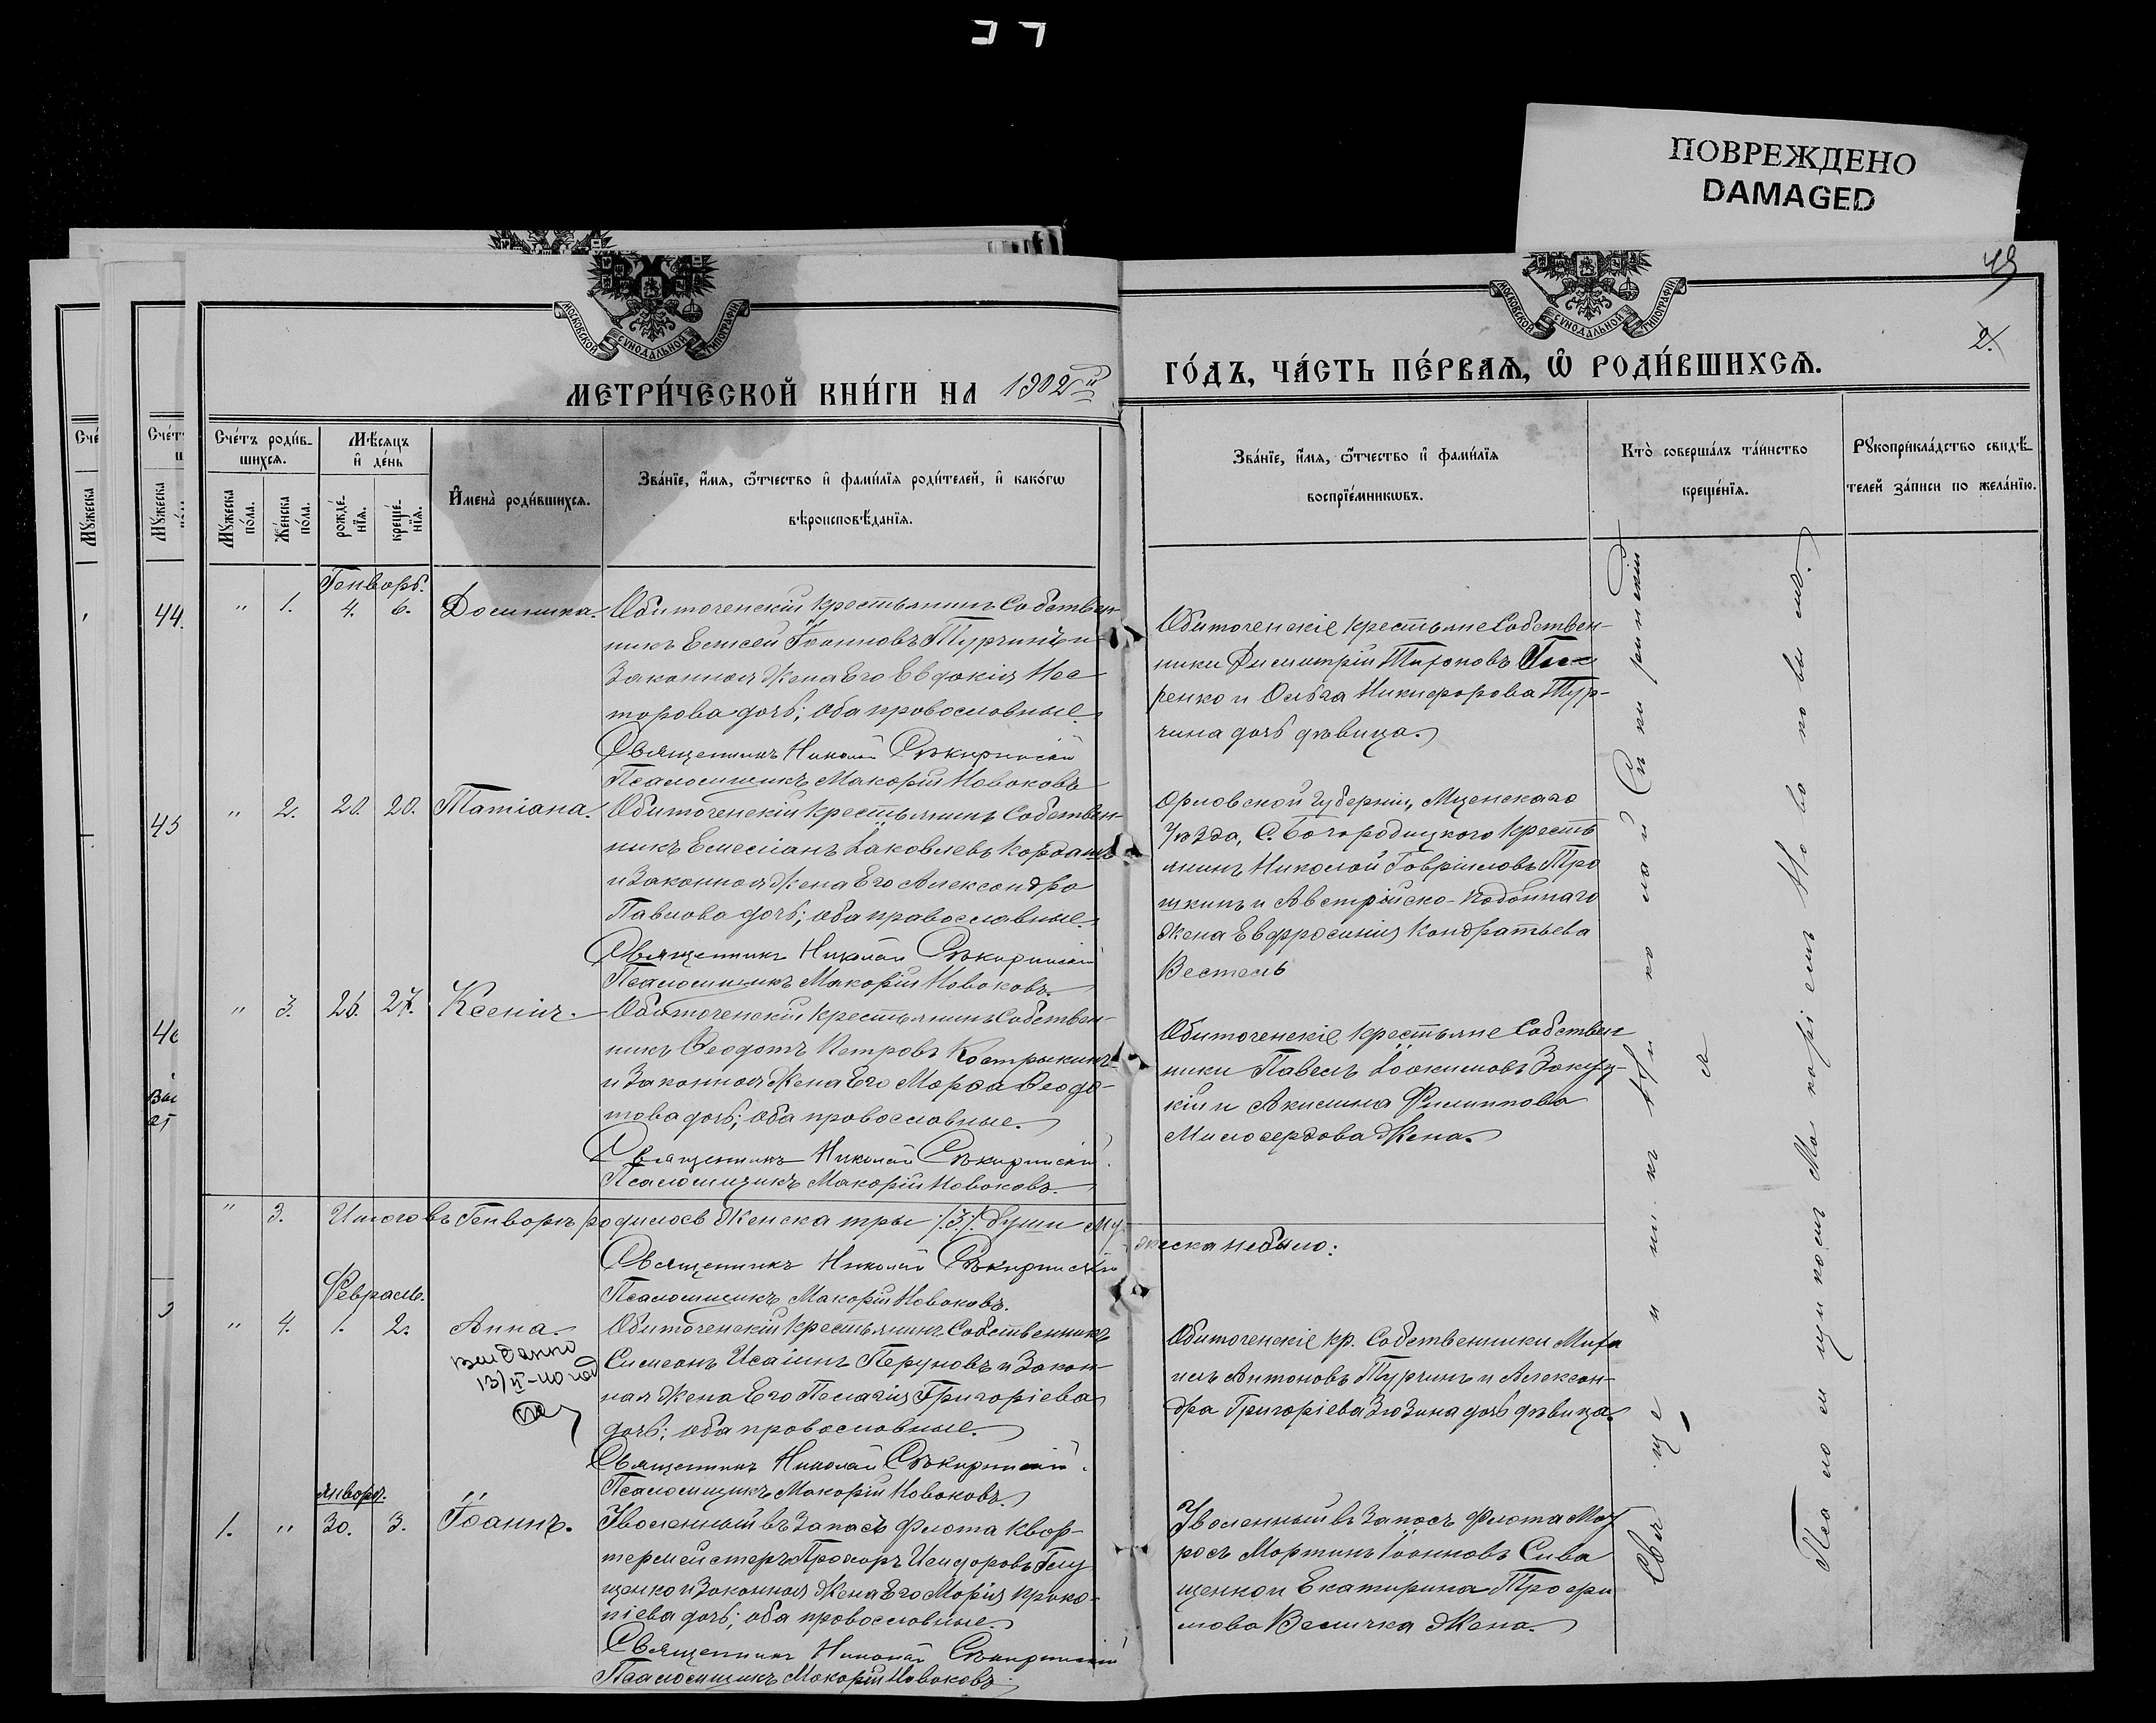 ПОВРЕЖДЕНО
DAMAGED
МОСКОВСКОЙ СУНОДАЛЬНОЙ ТИПОГРАФІИ
МОСКОВСКОЙ СУНОДАЛЬНОЙ ТИПОГРАФІИ
49
2.
МЕТРИ́ЧЕСКОЙ КНИ́ГИ НА 1902й
ГО́ДЪ, ЧА́СТЬ ПЕ́РВАѦ, Ѡ҆ РОДИ́ВШИХСѦ.
Сче́тъ роди́в-
шихсѧ.
Мѣ́сяцъ
и҆ де́нь
Мꙋ́жеска по́ла.
Же́нска по́ла.
рожде́-
нїѧ.
креще́-
нїѧ.
И҆мена̀ роди́вшихсѧ.
Зва́нїе, и҆́мѧ, ѻ҆́тчество и҆ фами́лїѧ роди́телей, и҆ како́гѡ
вѣроисповѣ́данїѧ.
Зва́нїе, и҆́мѧ, ѻ҆́тчество и҆ фами́лїѧ
воспрїе́мникѡвъ.
Кто̀ соверша́лъ та́инство
креще́нїѧ.
Рꙋкоприкла́дство свидѣ́-
телей за́писи по жела́нїю.
44.
45
Генворь.
" 1. 4. 6. Домника. Обиточенскій крестьянинъ Собствен-
никъ Елисей Іоанновъ Турчинъ и
Законная Жена Его Евдокія Нес
торова дочь; оба провославные.
Священникъ Николай Сѣкиринскій
Псаломщикъ Макорій Новоковъ
Обиточенскіе крестьяне Собствен-
ники Димитрій Тихоновъ
ренко и Ольга Никифорова Тур-
чина дочь дѣвица.
" 2. 20. 20. Татіана. Обиточенскій крестьянинъ Собствен-
никъ Емеліанъ Іаковлевъ Кордашъ
и Законная Жена Его Александра
Павлова дочь; оба православные.
Священникъ Николай Сѣкиринскій
Псаломщикъ Макорій Новоковъ.
Орловской Губерніи, Мценскаго
Уѣзда, С. Богородицкого Кресть
янинъ Николой Говріиловъ Про
шкинъ и Австрійско-подоннаго
Жена Евфросинія Кондратьева
Вестель
" 3. 26. 27. Ксенія. Обиточенскій крестьянинъ Собствен-
никъ Ѳеодотъ Петровъ Кострыкинъ
и Законная Жена Его Марѳа Ѳеодо-
това дочь; оба провославные.
Священникъ Николай Сѣкиринскій.
Псаломщикъ Макорій Новоковъ.
Обиточенскіе крестьяне Собствен
ники Павелъ Іоакимовъ Закуц-
кій и Акилина Филиппова
Милосердова Жена.
" 3. Итого въ Генворѣ родилось Женска тры /3/. души Му-
жеска небыло:
Священникъ Николай Сѣкиринскій
Псаломщикъ Макорій Новоковъ.
Февраль.
" 4. 1. 2. Анна. Обиточенскій крестьянинъ Собственникъ
выдано
Симеонъ Исаіинъ Перуновъ и Закон
ная Жена Его Пелагія Григоріева
дочь; оба провославные.
Священникъ Николай Сѣкиринскій.
Псаломщикъ Макорій Новоковъ.
Обиточенскіе кр. Собственники Миха
илъ Антоновъ Турчинъ и Алексан-
дра Григоріева Зюзина дочь дѣвица.
Январь.
1. " 30. 3. Іоаннъ. Уволенный въ Запасъ Флота Квор-
термейстеръ Прохоръ Исидоровъ Глу
щенко и Законная Жена Его Марія Проко-
піева дочь; оба провословные.
Священникъ Николай Сѣкиринскій
Псаломщикъ Макорій Новоковъ.
Уволенный въ Запасъ Флота Мат
росъ Мортинъ Іоанновъ Сива
щенко и Екатирина Трофи
мова Величка Жена.
Священникъ Николай Сикиринскій
Псаломщикомъ Макоріемъ Новоковымъ.